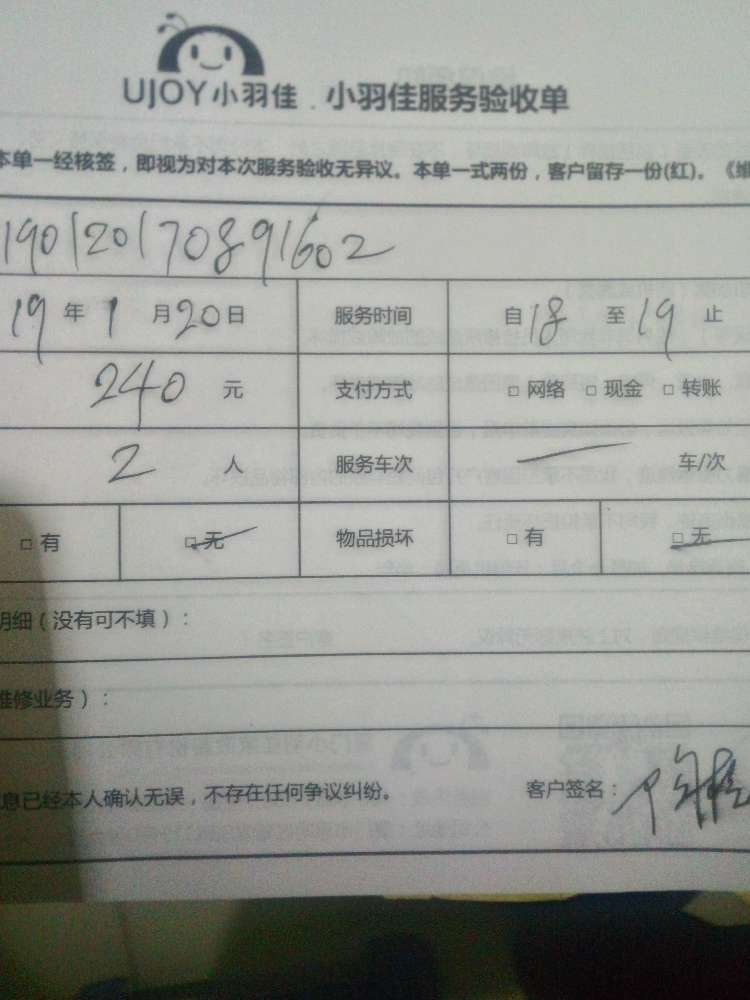 UJOY小羽佳 . 小羽佳服务验收单
本单一经核签，即视为对本次服务验收无异议。本单一式两份，客户留存一份(红)。《维
190120170891602
19年1月20日 服务时间 自18至19止
240元 支付方式 □网络 □现金 □转账
2人 服务车次 — 车/次
□有 □无 物品损坏 □有 □无
明细（没有可不填）：
维修业务）：
息已经本人确认无误，不存在任何争议纠纷。 客户签名：